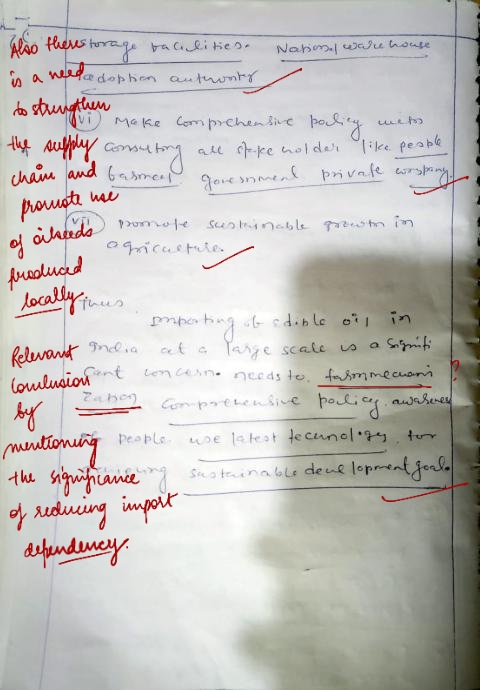 Also there
is a need
to strengthen
the supply
chain and
promote use
of oilseeds
produced
locally.
storage facilities. National warehouse
adoption authority
(vi) Make comprehensive policy with
consulting all stake holder like people
government private
(vii) promote sustainable growth in
agriculture.
Thus
importing of edible oil in
India at a large scale is a signifi
cant concern needs to farm mechani
zation comprehensive policy. awareness
of people use latest technology for
sustainable development goal.
?
Relevant
conclusion
by
mentioning
the significance
of reducing import
dependency.